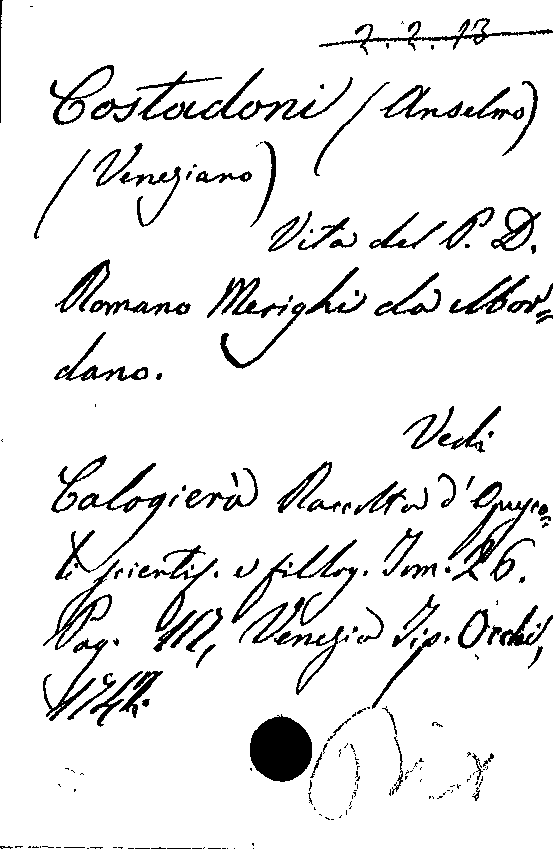 2.2.13
Costadoni (Anselmo)
(Veneziano)
Vita del P. D.
Romano Merighi da Mor=
dano.
Vedi
Calogierà Raccolta d'Opusco=
li scientif. e fillog. Tom. 26.
Pag. Venezia Tip. Occhi,